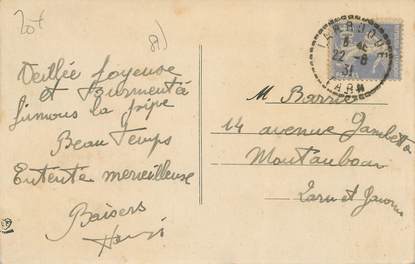 20f
Veillée joyeuse
et tourmentée
fumons la pipe
Beau Temps
Entente merveilleuse
Baisers
Henri
LARROQUE
22 - 8
31
TARN
M Barrier
14 avenue Gambetta
Montauban
Tarn et Garonne